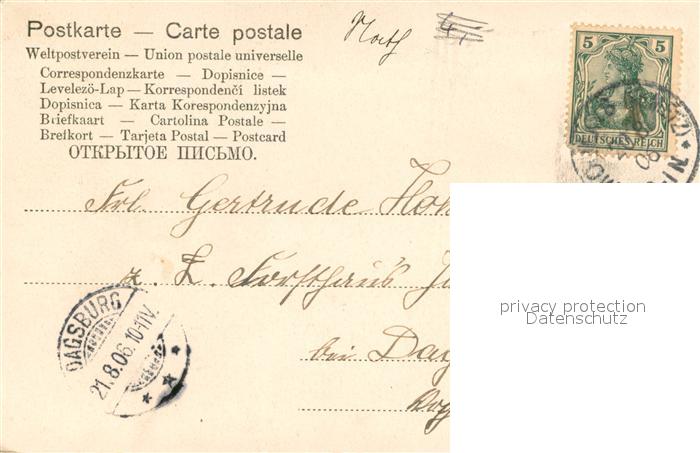 Postkarte — Carte postale
Weltpostverein — Union postale universelle
Correspondenzkarte — Dopisnice —
Levelező-Lap — Korrespondenčí listek
Dopisnica — Karta Korespondenzyjna
Briefkaart — Cartolina Postale —
Brefkort — Tarjeta Postal — Postcard
ОТКРЫТОЕ ПИСЬМО.
5 5
DEUTSCHES REICH
Frl. Gertrude Hoh
z. Z. Forsthaus
bei Dag
privacy protection
Datenschutz
DAGSBURG
21.8.06.10-11V.